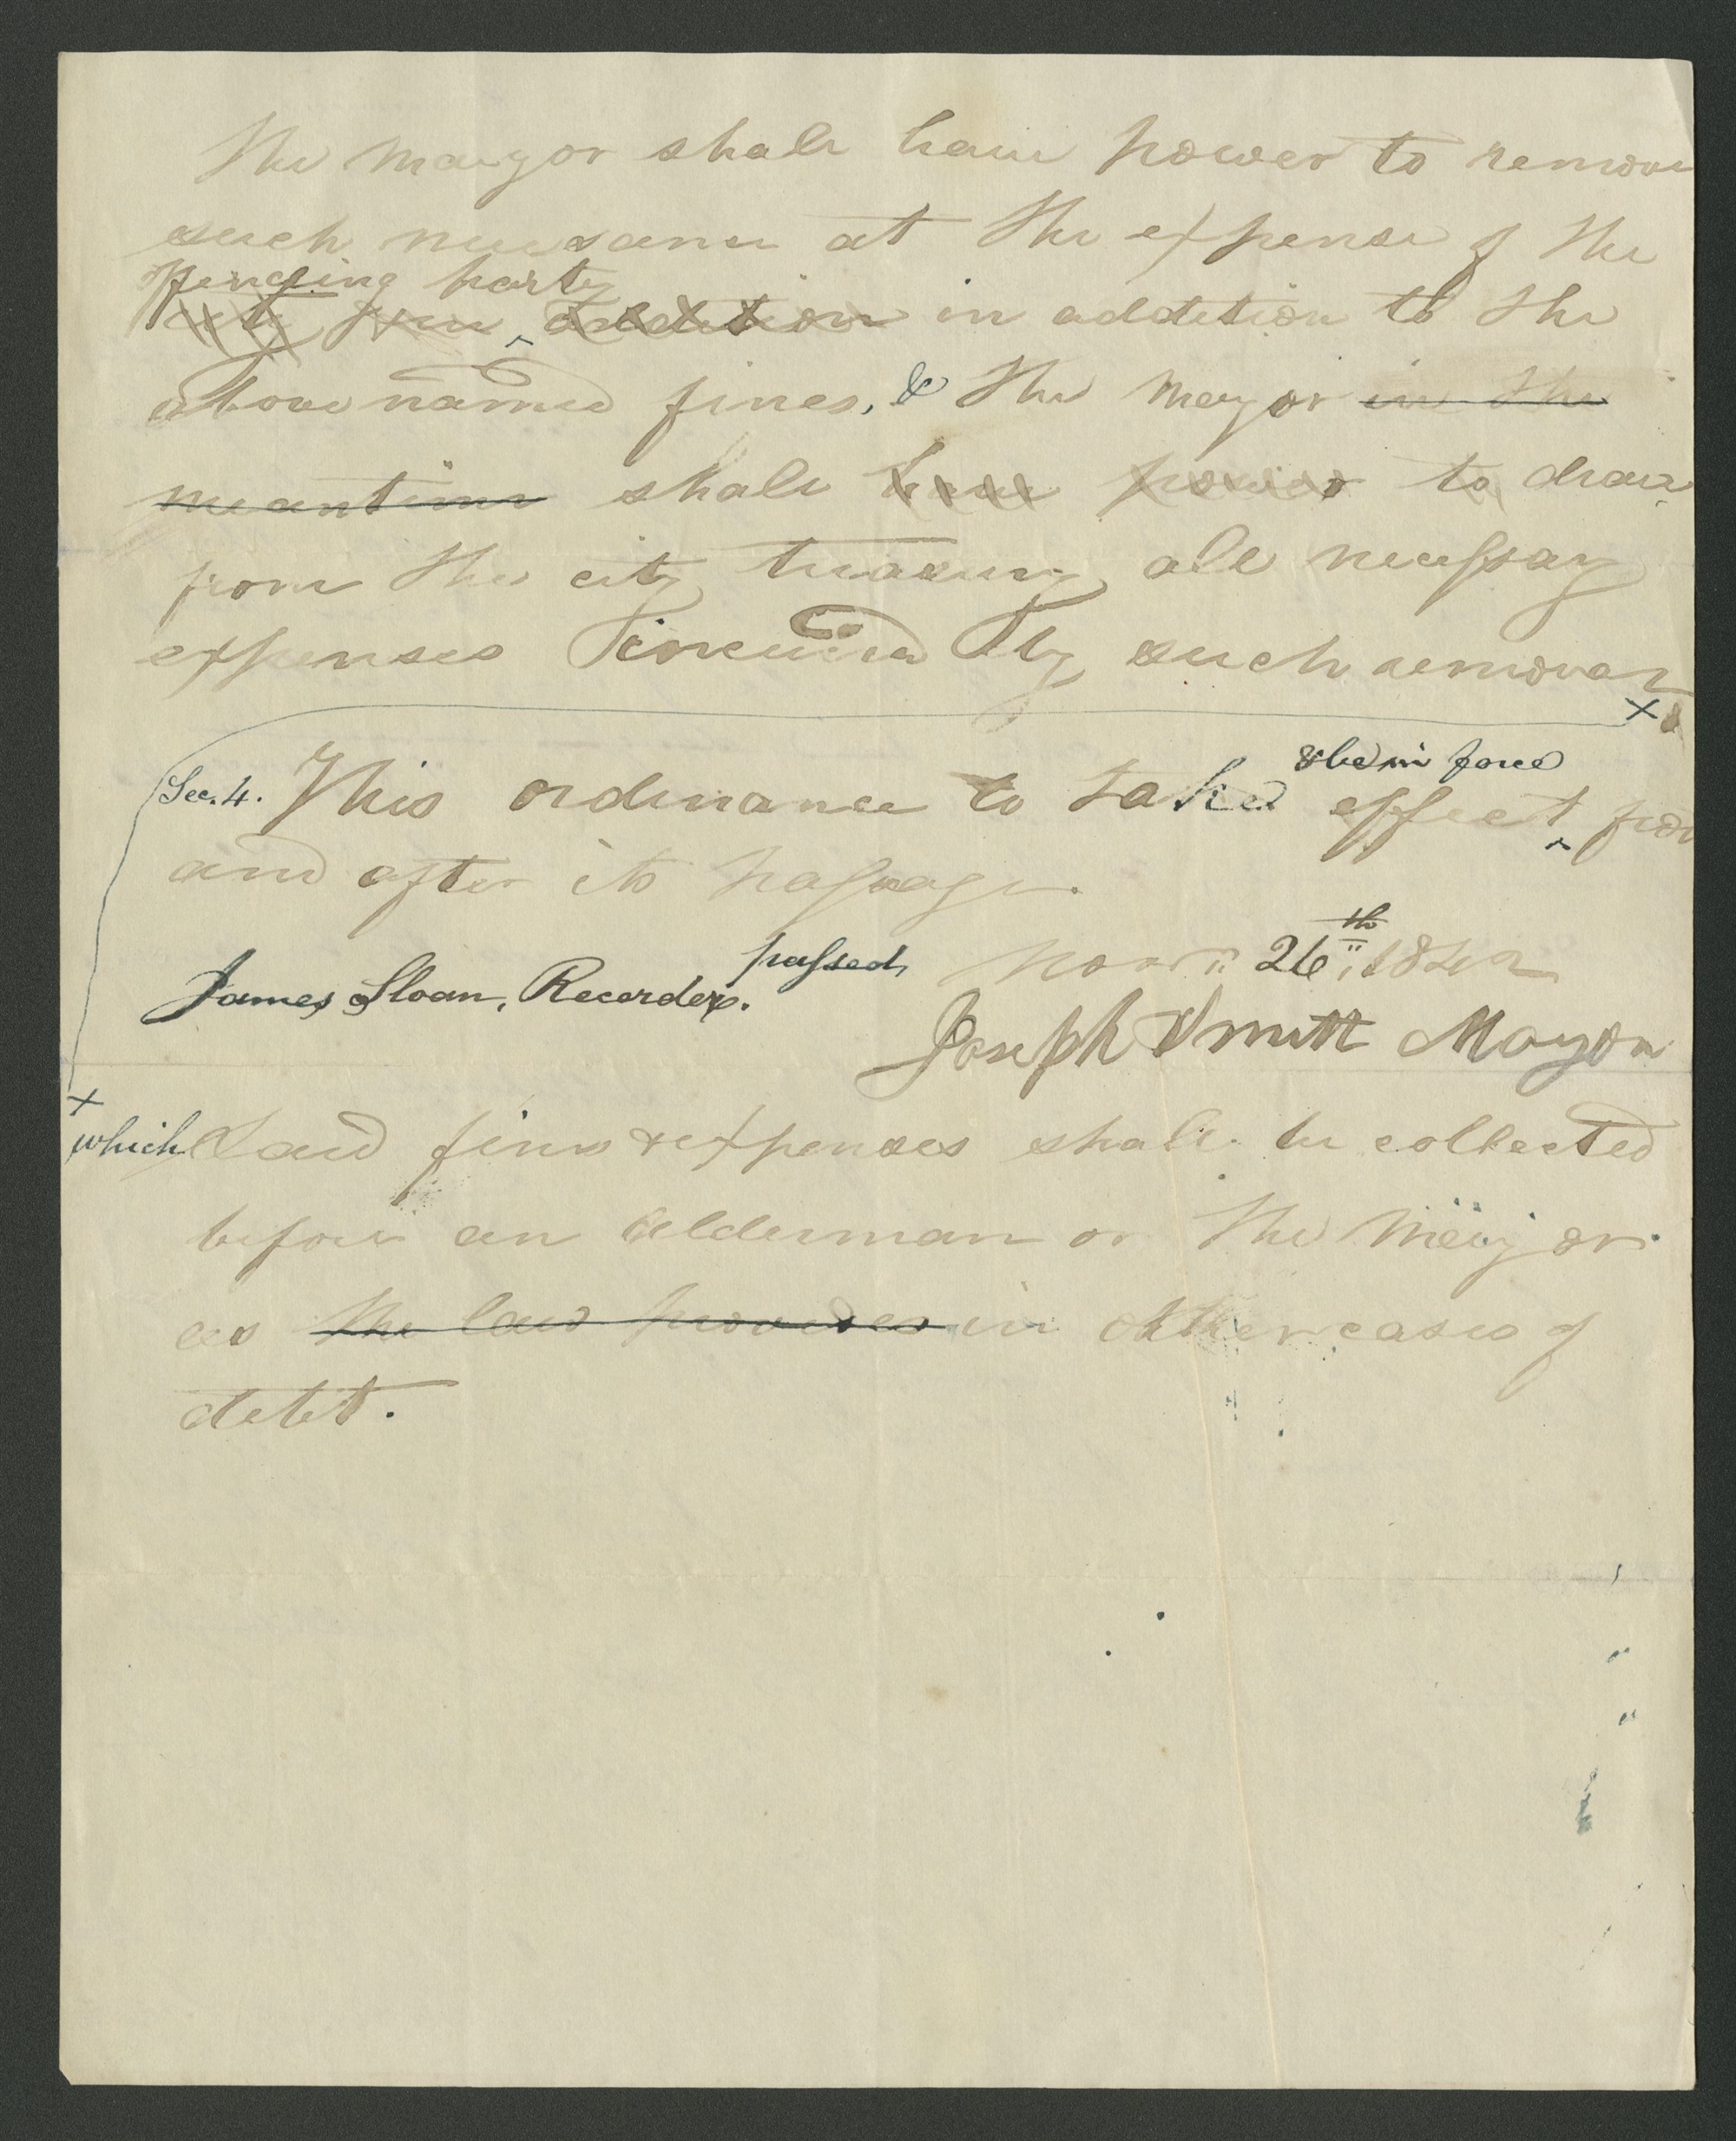 The Mayor shall have power to remove
such nuisance at the expense of the
offending party
city in addition to the
above named fines, & the Mayor in the
meantime shall have power to draw
from the city treasury all necessary
expenses incurred by such removal
x
& be in force
Sec. 4. This ordinance to take effect ^ from
and after its passage.
passed Nov. 26th 1842
James Sloan, Recorder.
Joseph Smith Mayor
x
which Said fines & expenses shall be collected
before an alderman or the Mayor
as the law provides in other cases of
debt.